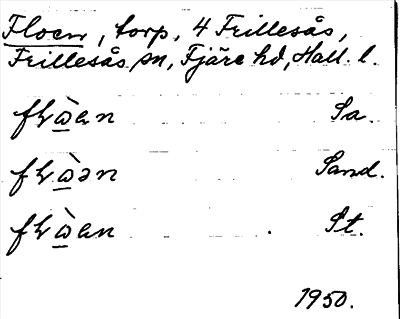 Floen, torp, 4 Frillesås,
Frillesås sn, Fjäre hd, Hall. l.
flὼ̲en Sa.
flὼ̲ən Sand.
flὼ̲en St.
1950.